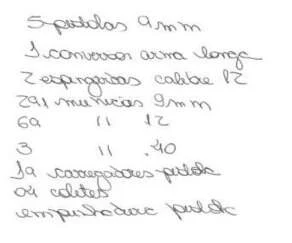 5 pistolas 9mm
1 conversor arma longa
2 espingardas calibre 12
291 municias 9mm
69 " 12
3 " .40
19 carregadores pistola
04 coletes
pistola